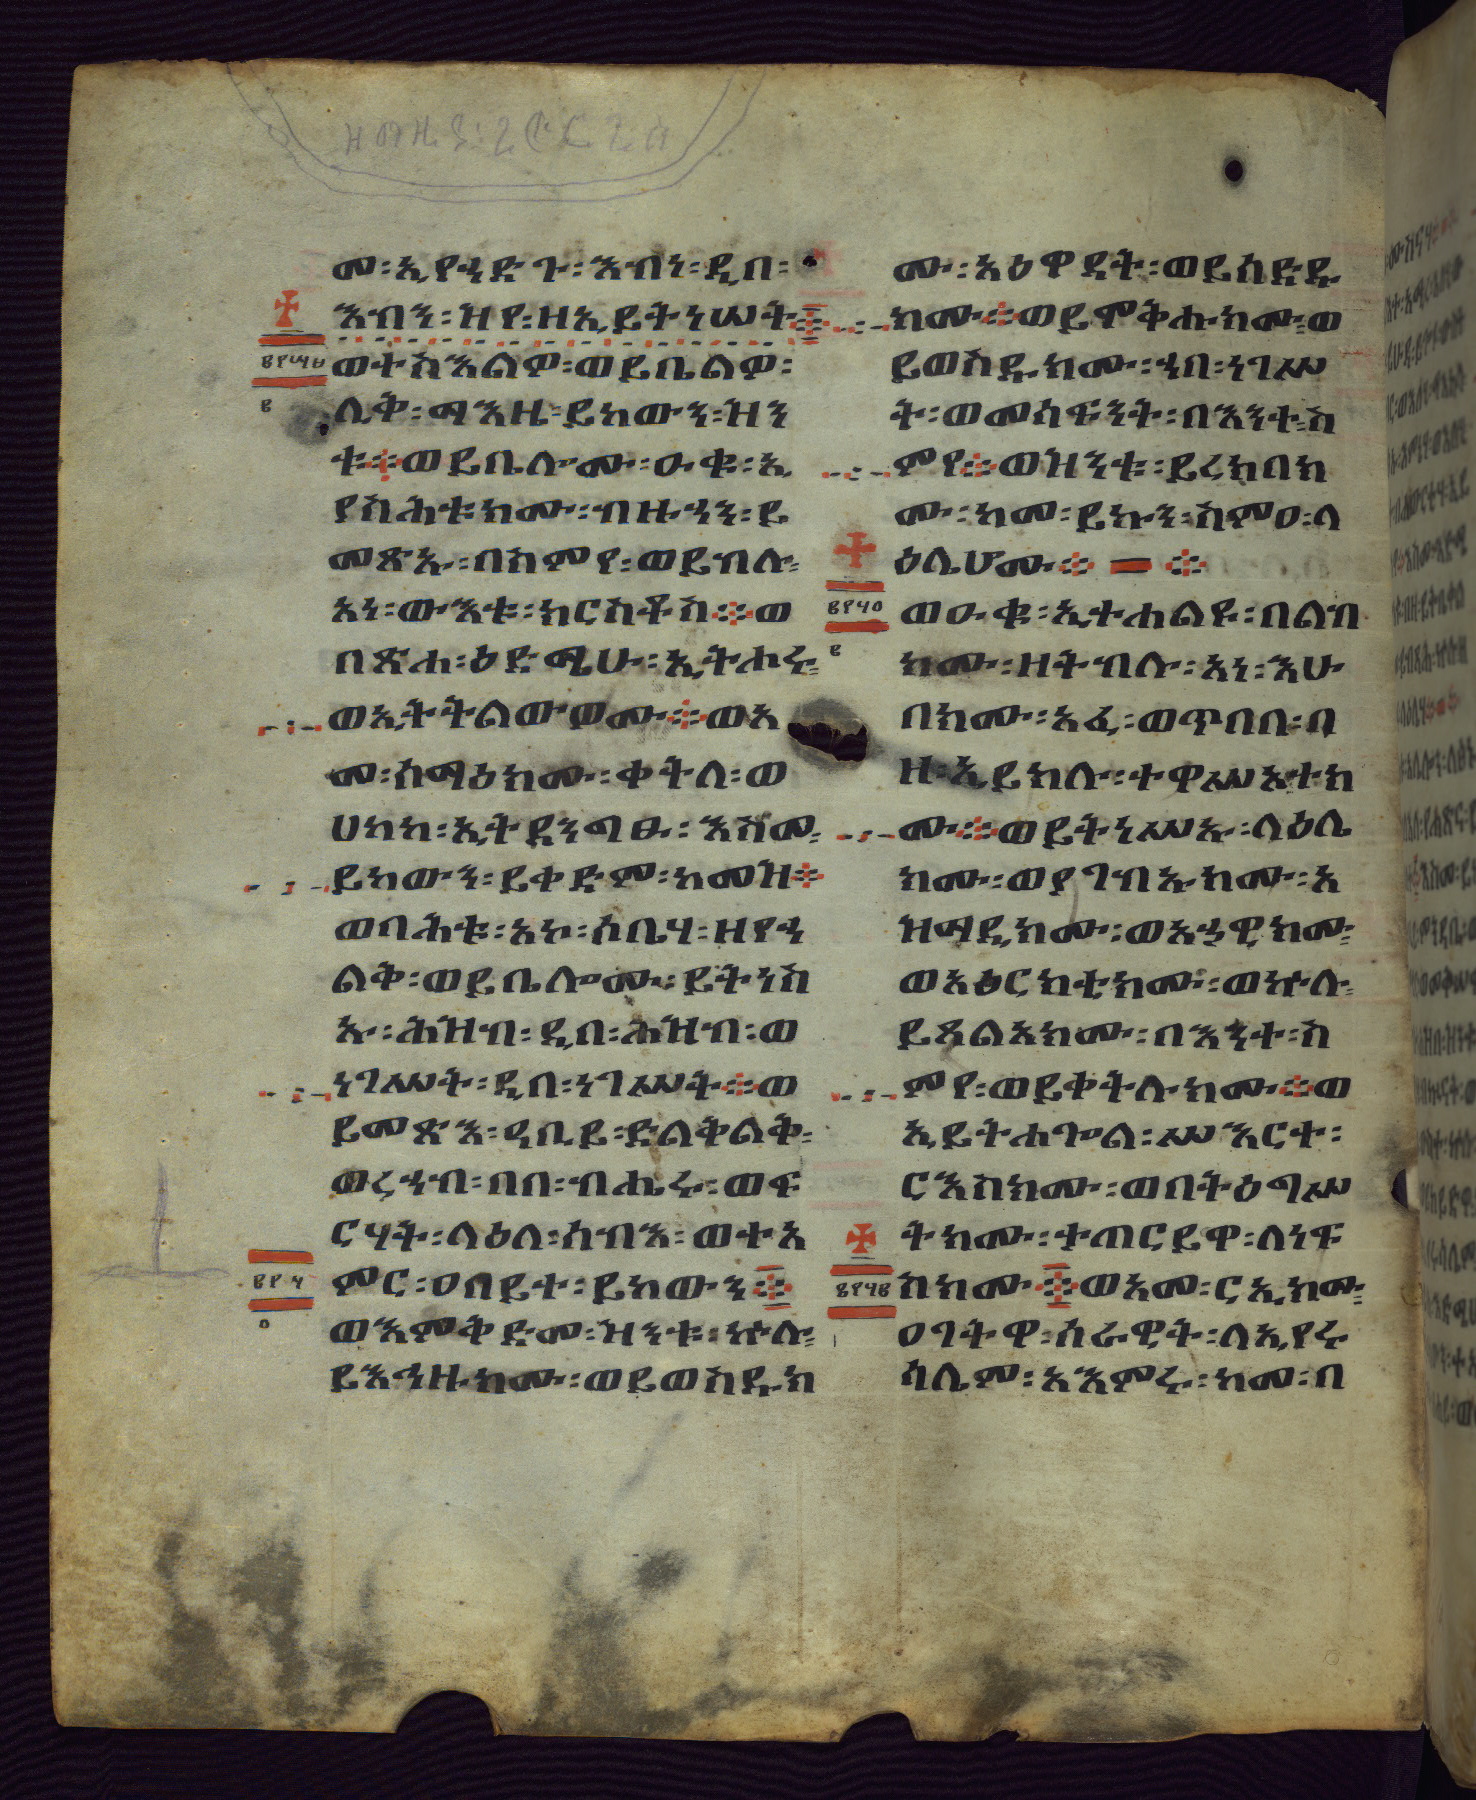 መ፡ኢየኃድጉ፡እብነ፡ዲበ፡
እብን፡ዝየ፡ዘኢይትነሠት፨
ወተስእልዎ፡ወይቤልዎ፡
ሊቅ፡ማእዜ፡ይከውን፡ዝን
ቱ፨ወይቤሎሙ፡ዑቁ፡ኢ
ያስሕቱክሙ፡ብዙኃን፡ይ
መጽኡ፡በስምየ፡ወይብሉ፡
አነ፡ውእቱ፡ክርስቶስ፨ወ
በጽሐ፡ዕድሜሁ፡ኢትሑሩ፡
ወኢትትልውዎሙ፨ወአ
መ፡ሰማዕክሙ፡ቀትለ፡ወ
ሀከከ፡ኢትደንግፁ፡እስመ፡
ይከውን፡ይቀድም፡ከመዝ፨
ወባሕቱ፡አኮ፡ሶቤሃ፡ዘየኃ
ልቅ፡ወይቤሎሙ፡ይትነስ
ኡ፡ሕዝብ፡ዲበ፡ሕዝብ፡ወ
ነገሥት፡ዲበ፡ነገሥት፨ወ
ይመጽእ፡ዓቢይ፡ድልቅልቅ፡
ወረኃብ፡በበ፡ብሔሩ፡ወፍ
ርሃት፡ላዕለ፡ሰብእ፡ወተአ
ምር፡ዐበይተ፡ይከውን፨
ወእምቅድመ፡ዝንቱ፡ኵሉ፡
ይእኅዙክሙ፡ወይወስዱክ
ሙ፡አዕዋዳት፡ወይሰድዱ
ክሙ፨ወይሞቅሑክሙ፡ወ
ይወስዱክሙ፡ኀበ፡ነገሥ
ት፡ወመሳፍንት፡በእንተ፡ስ
ምየ፨ወዝንቱ፡ይረክበክ
ሙ፡ከመ፡ይኩን፡ስምዐ፡ላ
ዕሌሆሙ፨
ወዑቁ፡ኢተሐልዩ፡በልብ
ክሙ፡ዘትብሉ፡አነ፡እሁ
በክሙ፡አፈ፡ወጥበበ፡በ
ዘ፡ኢይክሉ፡ተዋሥኦተክ
ሙ፨ወይትነሥኡ፡ላዕሌ
ክሙ፡ወያገብኡክሙ፡አ
ዝማዲክሙ፡ወአኃዊክሙ፡
ወአዕርክቲክሙ፡ወኵሉ፡
ይጸልአክሙ፡በእንተ፡ስ
ምየ፡ወይቀትሉክሙ፨ወ
ኢይትሐጐል፡ሥእርተ፡
ርእስክሙ፡ወበትዕግሥ
ትክሙ፡ታጠርይዋ፡ለነፍ
ስክሙ፨ወአመ፡ርኢክሙ፡
ዐገትዋ፡ሰራዊት፡ለኢየሩ
ሳሌም፡አእምሩ፡ከመ፡በ